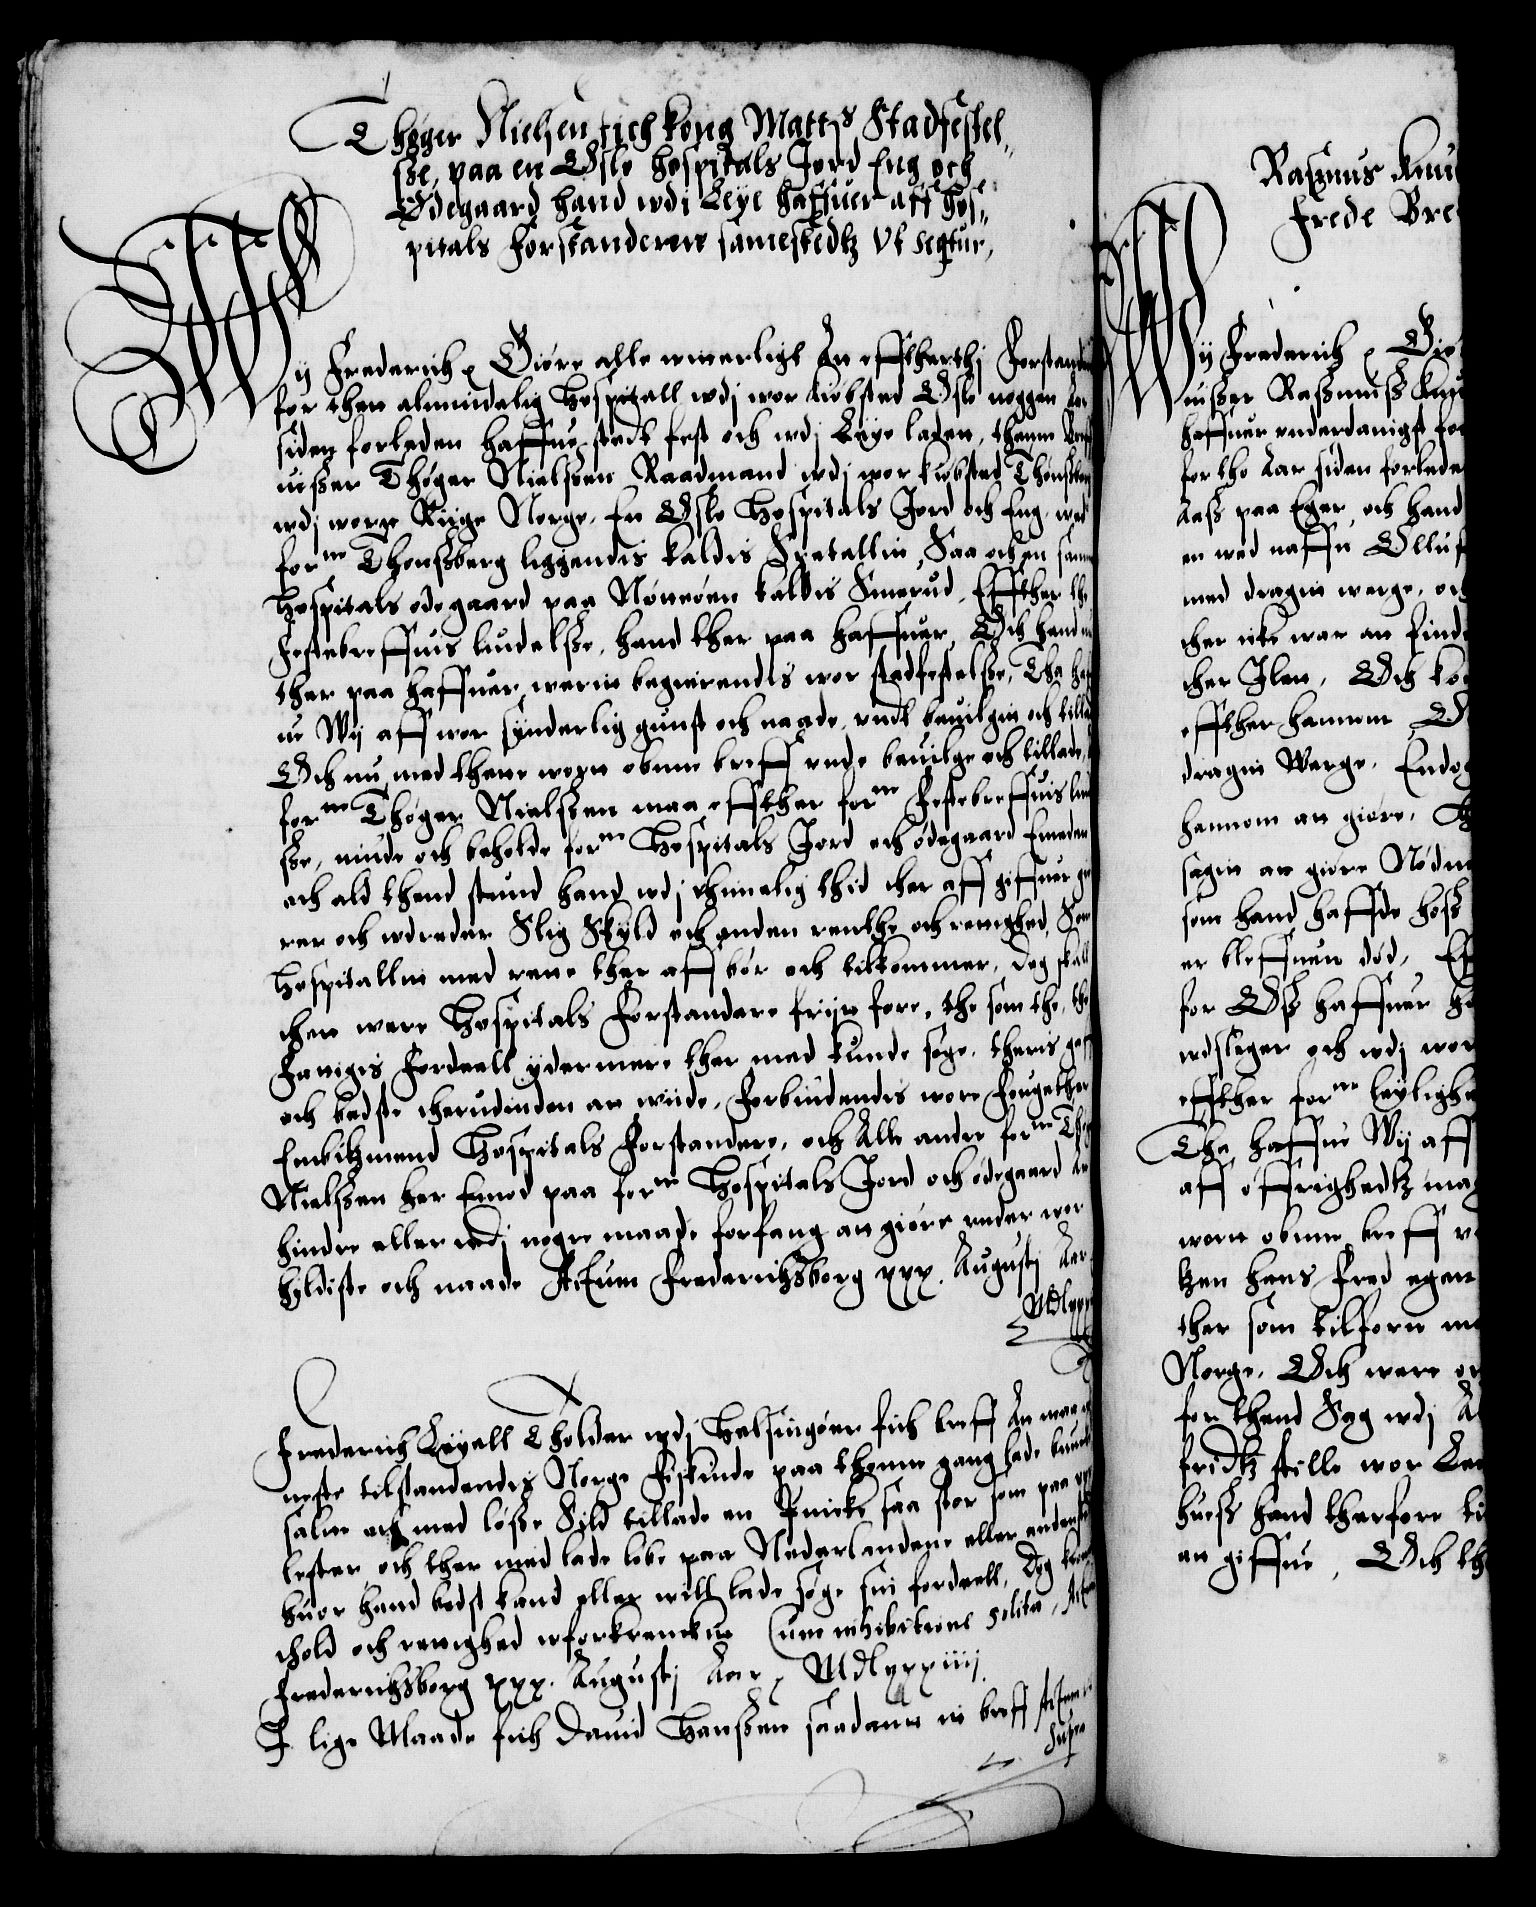 Thøger Nielsen fich kong Matts Stadfestel-
ße, paa en Oslo hospitals Jord Eng och
Ødegaard hand wdi Leye haffuer aff hos-
pitals Forstanderen samestedtz Vt seqtur,
Wij Frederich etc Giøre alle witterligt An effttherthj Forstand
for then almindelig Hospitall wdj wor kiøbsted Oslo noggen Aar
siden forleden haffue stedt fest och wdj Leye laden, thenne breff
uißer Thøger Nielßen Raadmand wdj wor kiøbsted Thønsberg
wdj wort Riige Norge, En Oslo Hospitals Jord och Eng, wed
forne Thonßberg liggendis kaldis Spetallin, Saa och en samme
Hospitals ødegaard paa Nøtteøen kaldis Smerud, Effther the
Festebreffuis liudelße, hand ther paa haffuer, Och hand nu
ther paa haffuer werit begierendis wor stadfestelße, Tha haf
ue Wij aff wor synderlig gunst och naade, undt beuilget och tillad
Och nu med thette wort obne breff unde beuilge och tillade,
forne Thøger Nielßen maa effther forne Festebreffuis liud
ße, niude och beholde forne Hospitals Jord och ødegaard Emeden
och ald thend stund hand wdj thimelig thid ther aff giffuer gio
rer och wdreder Slig Skyld och anden renthe och rettighed, Som
Hospitallit med rette ther aff bør och tilkommer, Dog skall
then were Hospitals Forstandere frijtt fore, the som the, tho
Fattigis Fordeell ydermere ther med kunde søge, theris gaff
och bedste therudinden at wiide, Forbiudendis wore Fougether
Embitzmend Hospitals Forstandere, och Alle andre forne Thøg
Nielßen her Emod paa forne Hospitals Jord och ødegaard An
hindre eller wdj nogre maade forfang at giøre under wor
hyldiste och naade Actum Frederichsborg xxx. Augusti Aar
MDlxxx
Frederich Leyell Tholder wdj Helsingøer fich breff An maa
neste tilstandendis Norge Fiskinde paa thenne gang lade
salte och med løße Sild tillade en Pincke saa stor som paa xxx
lester och ther med lade løbe paa Nederlandene eller andensted
huor hand bedst kand eller will lade søge sin fordeell, Dog
thold och rettighed wforkrencket Cum inhibitione solita, Actum
Frederichsborg xxx. Augustj Aar etc MDlxxxiiij.
I lige Maade fich Dauid Hanßen saadant it breff Actum ut
supra
Rasmus Knud
frede Bre
Wij Frederich etc Gio
uißer Raßmuß Knud
haffuer underdanigst for
for tho Aar siden forleden
Aaß paa Eger, och hand
en wed naffn Olluf
med dragen werge, och
ther icke war an finde
ther Ilen, Och ko
effther hannom, O
dragen Werge, Endog
hannom an giøre, Th
sagen an giøre Nødw
som hand haffde hoß
er bleffuen død, Ef
for Oß haffuer ha
wdsleger och wdj wor
effther forne leylighe
Tha haffue Wij aff
aff øffrighedtz mag
wort obne breff v
ken hans Fred egen
ther som tilforn m
Norge, Och were
for thend Sag wdj A
fridtz stille wor Le
hueß hand therfore ti
an giffue, Och th